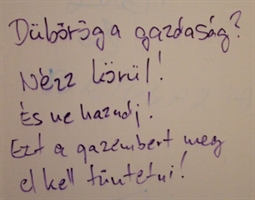 Dübörög a gazdaság?
Nézz körül!
És ne hazudj!
Ezt a gazembert meg
el kell tüntetni!